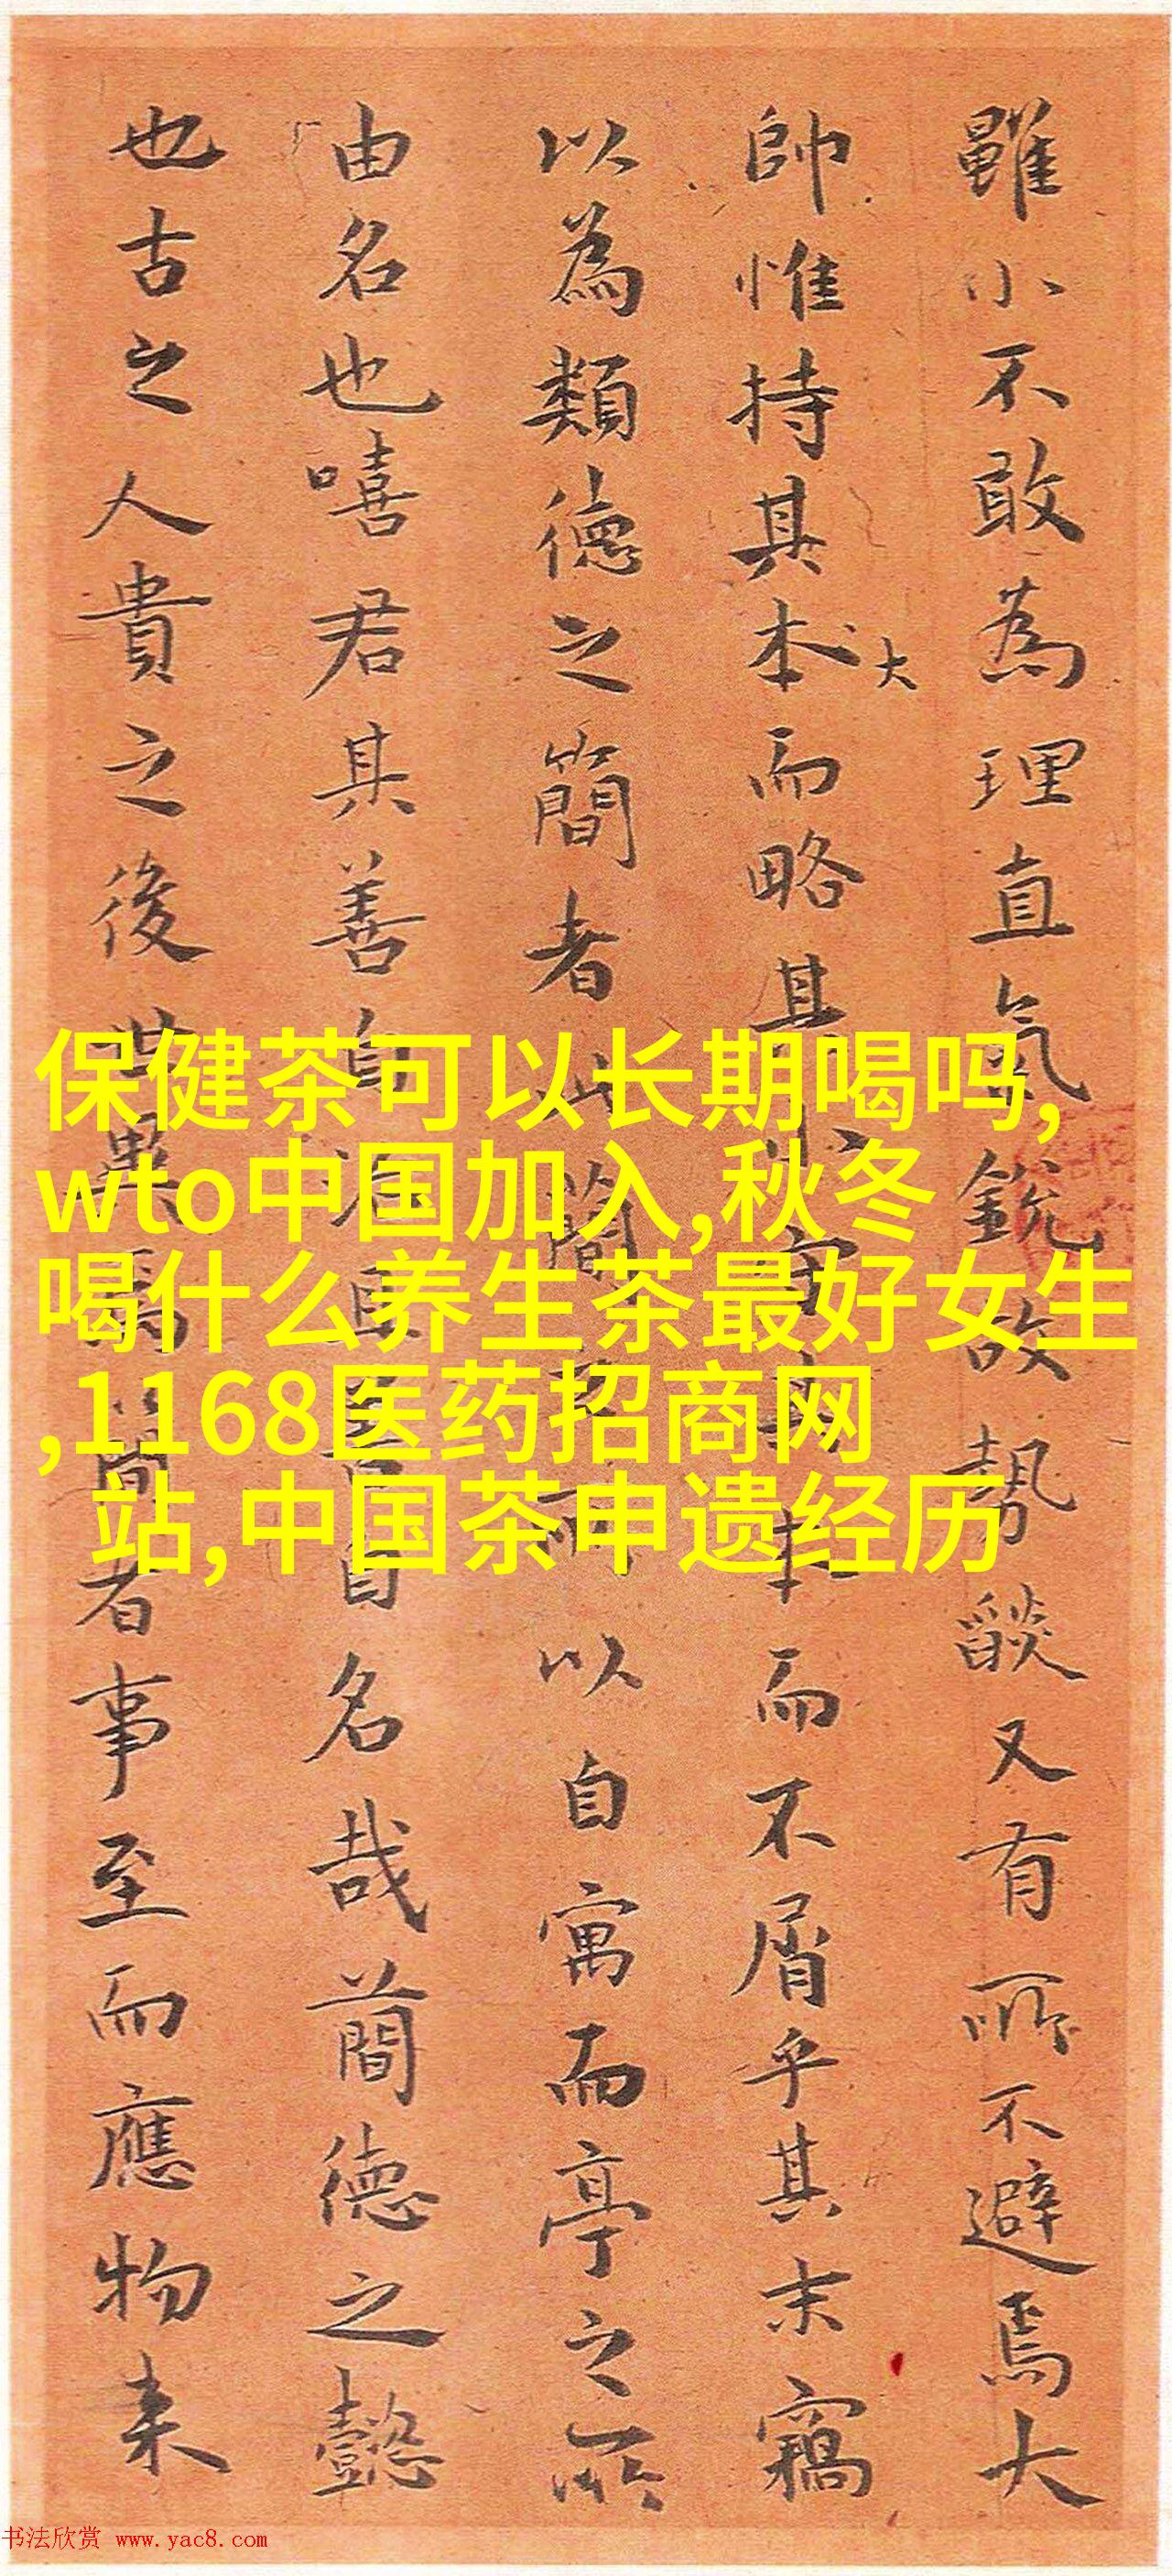 雖小不敢為理直氣銳故勢燄又有所不避焉大
帥惟持其本大而略其小守其本而不屑乎其末竊
以為類德之簡者此簡所以自寓而亭之所
由名也嘻君其善自況且善自名哉簡德之懿
也古之人貴之後世異焉簡者事至而應物来
保健茶可以长期喝吗,
wto中国加入,秋冬
喝什么养生茶最好女生
,1168医药招商网
站,中国茶申遗经历
书法欣赏 www.yac8.com